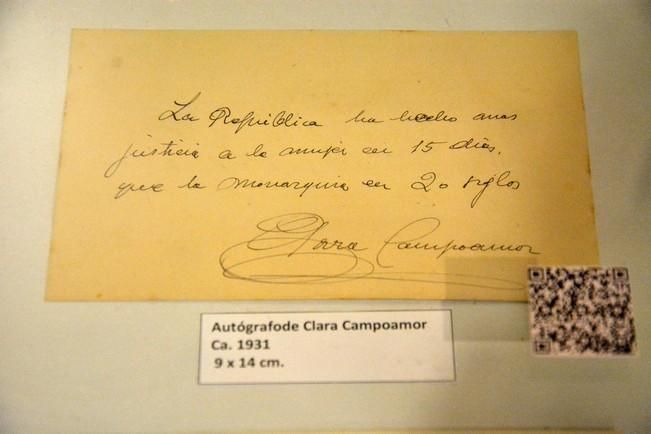 La República ha hecho mas
justicia a la mujer en 15 dias,
que la monarquia en 20 siglos
Clara Campoamor
Autógrafode Clara Campoamor
Ca. 1931
9 x 14 cm.